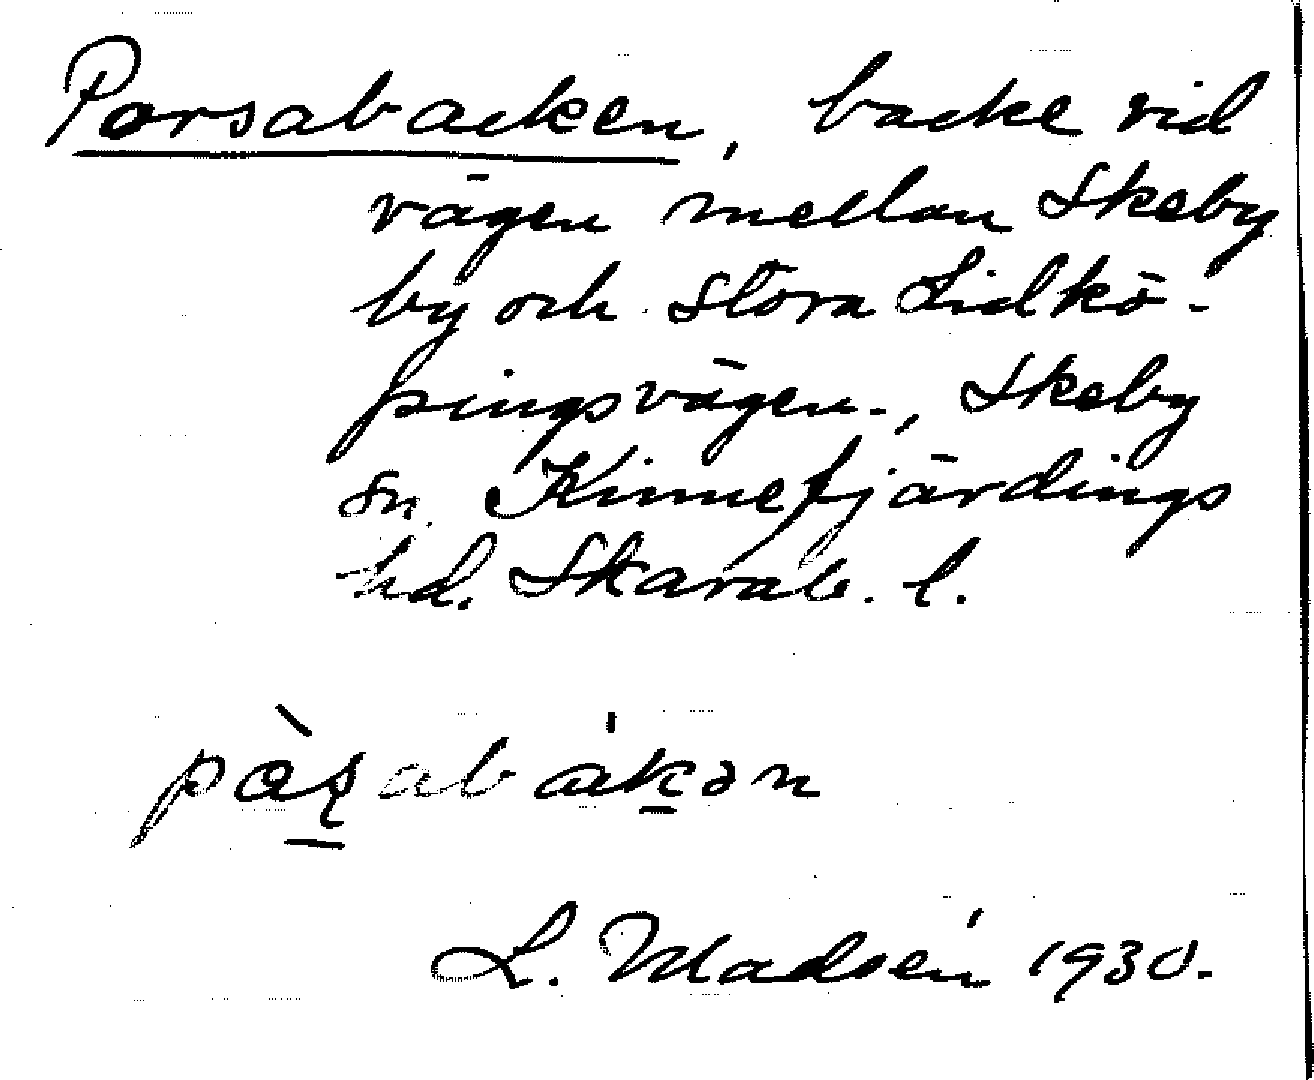 Porsabacken, backe vid
vägen mellan Skeby
by och stora Lidkö-
pingsvägen., Skeby
sn. Kinnefjärdings
hd. Skarab. l.
L. Madsén 1930.